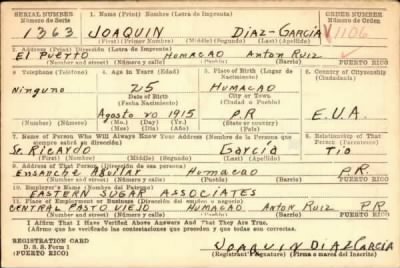 SERIAL NUMBER 1. Name (Print) Nombre (Letra de Imprenta) ORDER NUMBER
Número de Serie Número de Orden
1363 JOAQUIN DIAZ-GARCIA V1106
(First) (Primer Nombre) (Middle) (Segundo) (Last) (Apellido)
2. Address (Print) Dirección (Letra de Imprenta)
El PUERTO HUMACAO ANTON RUIZ
PUERTO RICO
3. Telephone (Teléfono) 4. Age in Years (Edad) 5. Place of Birth (Lugar de Nacimiento) 6. Country of Citizenship (Ciudadanía)
Ninguno 25 HUMACAO
Date of Birth City or Town
(Fecha Nacimiento) (Ciudad o Pueblo)
Agosto 1915 P.R E.U.A.
(Mo.) (Mes) (Day) (Día) (Yr.) (Año) State or country
(País)
7. Name of Person Who Will Always Know Your Address (Nombre de la Persona que siempre sabrá su dirección) 8. Relationship of That Person (Parentesco)
Sr. RICARDO GARCIA Tio
(First) (Nombre) (Middle) (Segundo) (Last) (Apellido)
9. Address of That Person (Dirección de esa persona)
Ensanche Aguilar Humacao P.R.
10. Employer's Name (Nombre del Patrono)
EASTERN SUGAR ASSOCIATES
11. Place of Employment or Business (Dirección del empleo o negocio)
CENTRAL PASTO VIEJO HUMACAO ANTON RUIZ P.R
I Affirm That I Have Verified Above Answers And That They Are True.
(Afirmo que he verificado las contestaciones que preceden y que todas son correctas.)
REGISTRATION CARD
D. S. S. Form 1
(PUERTO RICO)
JOAQUIN DIAZ GARCIA
(Registrant Signature) (Firma o marca del Inscrito)